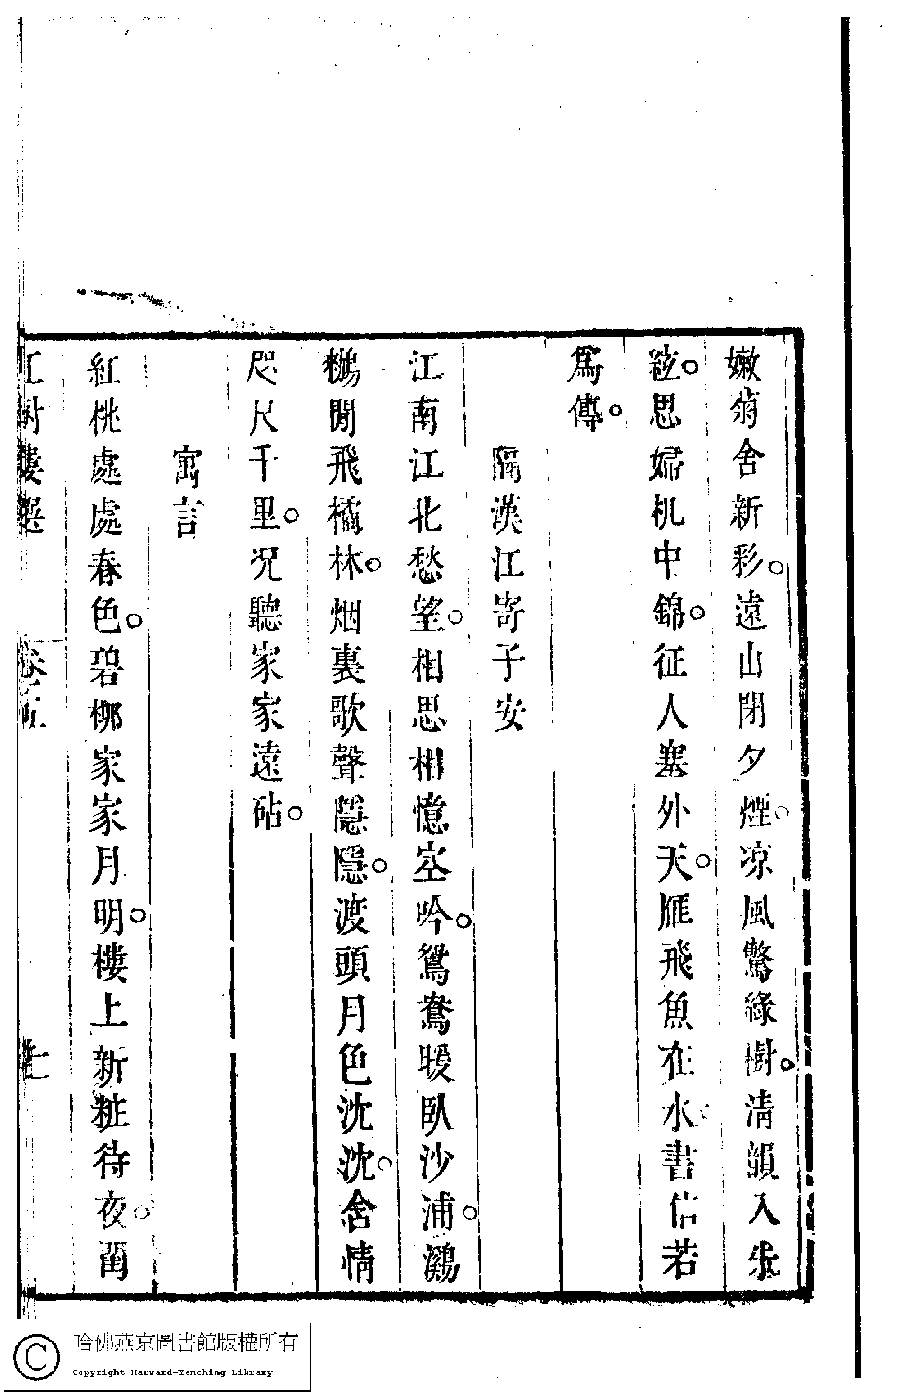 嫩菊含新彩。遠山閉夕煙。凉風驚綠樹。清韻入朱
絃。思婦机中錦。征人塞外天。雁飛魚在水。書信若
爲傳。
隔漢江寄子安
江南江北愁望。相思相憶空吟。鴛鴦暖臥沙浦。鸂
鶒閒飛橘林。烟裏歌聲隱隱。渡頭月色沈沈。含情
咫尺千里。况聽家家遠砧。
寓言
紅桃處處春色。碧柳家家月明。樓上新粧待夜。閨
卷五
哈佛燕京圖書館版權所有
Copyright Harvard-Yenching Library